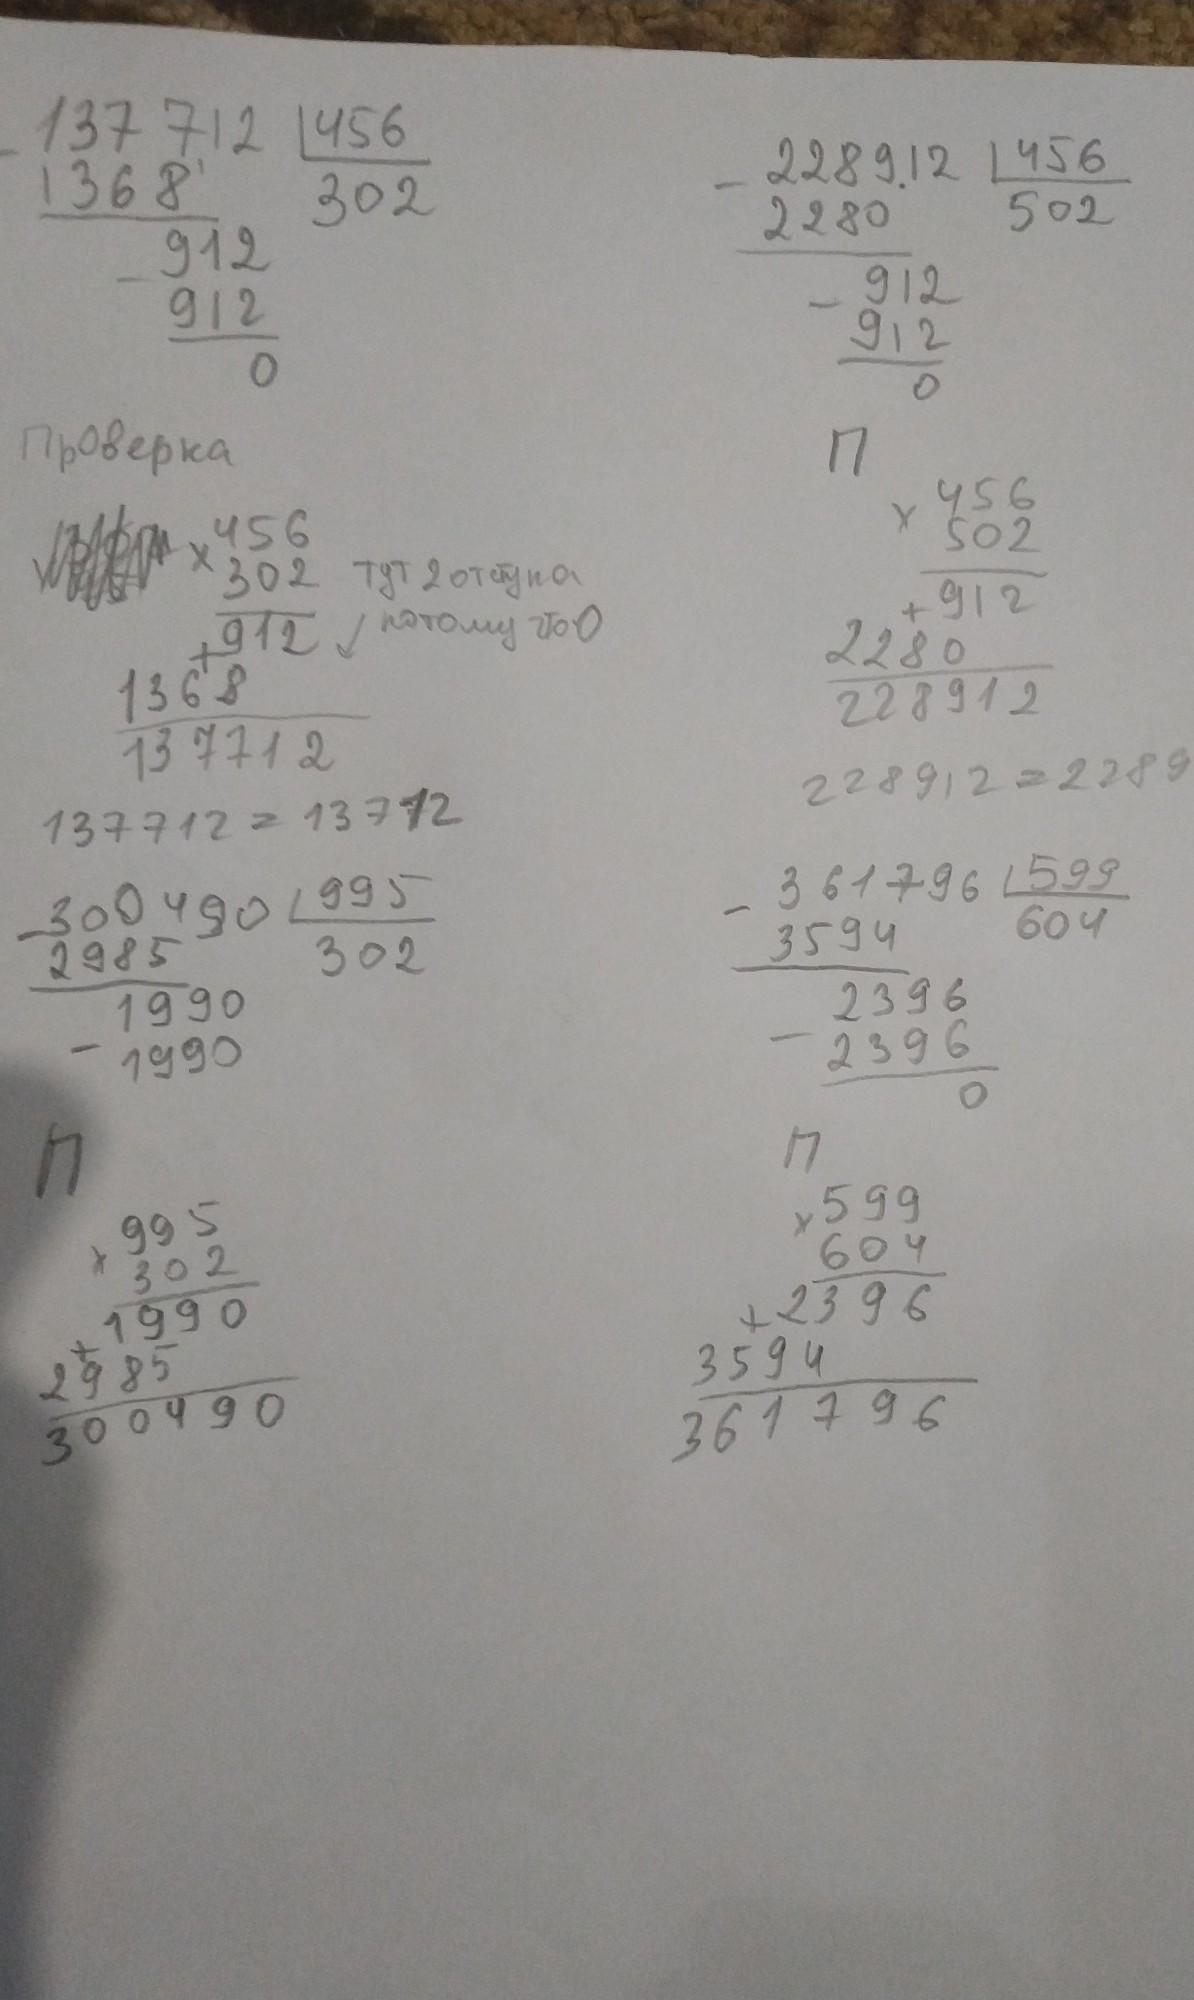 - 137712 | 456
1368 302
- 912
912
0
Проверка
× 456
302
+ 912
1368
137712
тут 2 отступа
потому что 0
137712 = 137712
- 300490 | 995
2985 302
1990
- 1990
П
× 995
302
1990
+ 2985
300490
- 228912 | 456
2280 502
- 912
912
0
П
× 456
502
+ 912
2280
228912
228912 = 2289
- 361796 | 599
3594 604
2396
- 2396
0
П
× 599
604
+ 2396
3594
361796